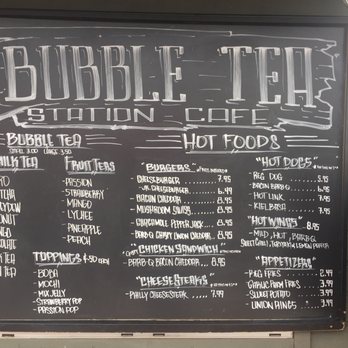 BUBBLE TEA
STATION CAFE
BUBBLE TEA
SMALL 3.00 LARGE 3.50
MILK TEA
FRUIT TEAS
- PASSION
- STRAWBERRY
- MANGO
- LYCHEE
- PINEAPPLE
- PEACH
TOPPINGS
- BOBA
- MOCHI
- MIX JELLY
- STRAWBERRY POP
- PASSION POP
HOT FOODS
"BURGERS"
- CHEESEBURGER 7.95
- JR. CHEESEBURGER 6.99
- BACON CHEDDAR 8.95
- MUSHROOM SWISS 8.95
- GUACAMOLE PEPPER JACK 8.95
- BARB-Q CRISPY ONION CHEDDAR 8.95
"CRISPY CHICKEN SANDWICH"
- BARB-Q BACON CHEDDAR 8.95
"CHEESESTEAKS"
- PHILLY CHEESESTEAK 7.99
"HOT DOGS"
- REG DOG 5.95
- BACON BARB Q
- HOT LINK 7.95
- KIELBASA
"HOT WINGS"
- MILD, HOT, BARB-Q
"APPETIZERS"
- REG FRIES 2.99
- GARLIC PARM FRIES 3.99
- SWEET POTATO 3.99
- ONION RINGS 3.99